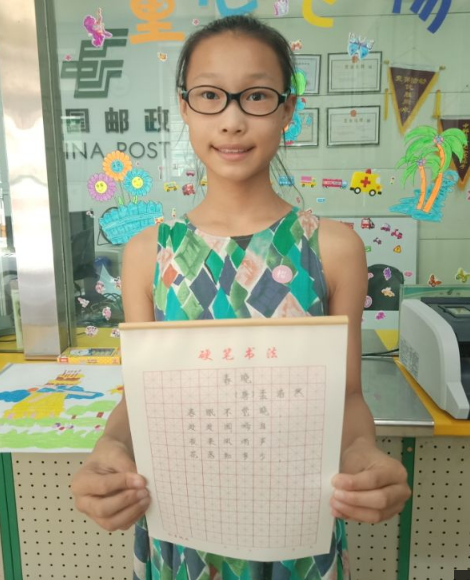 国邮政
INA POST
硬笔书法
春晓
唐 孟浩然
春眠不觉晓
处处闻啼鸟
夜来风雨声
花落知多少